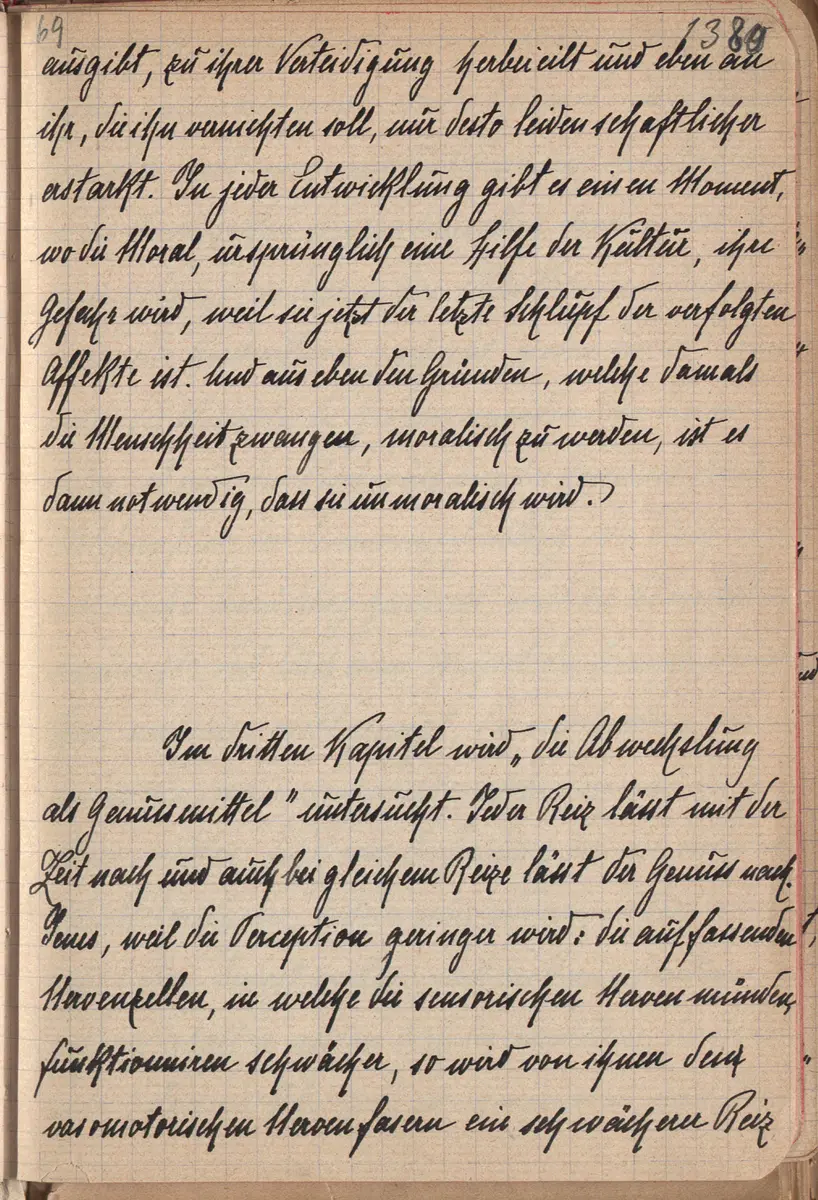 69
1380
ausgibt, zu ihrer Verteidigung herbeieilt und eben an
ihr, die ihn vernichten soll, nur desto leidenschaftlicher
erstarkt. In jeder Entwicklung gibt es einen Moment,
wo die Moral, ursprünglich eine Hilfe der Kultur, ihre
Gefahr wird, weil sie jetzt der letzte Schlupf der verfolgten
Affekte ist. Und aus eben den Gründen, welche damals
die Menschheit zwangen, moralisch zu werden, ist es
dann notwendig, dass sie unmoralisch wird.)
Im dritten Kapitel wird „die Abwechslung
als Genussmittel" untersucht. Jeder Reiz lässt mit der
Zeit nach und auch bei gleichem Reize lässt der Genuss nach.
Jenes, weil die Perception geringer wird: die auffassenden
Nervenzellen, in welche die sensorischen Nerven münden,
funktionniren schwächer, so wird von ihnen den
vasomotorischen Nervenfasern ein schwächerer Reiz